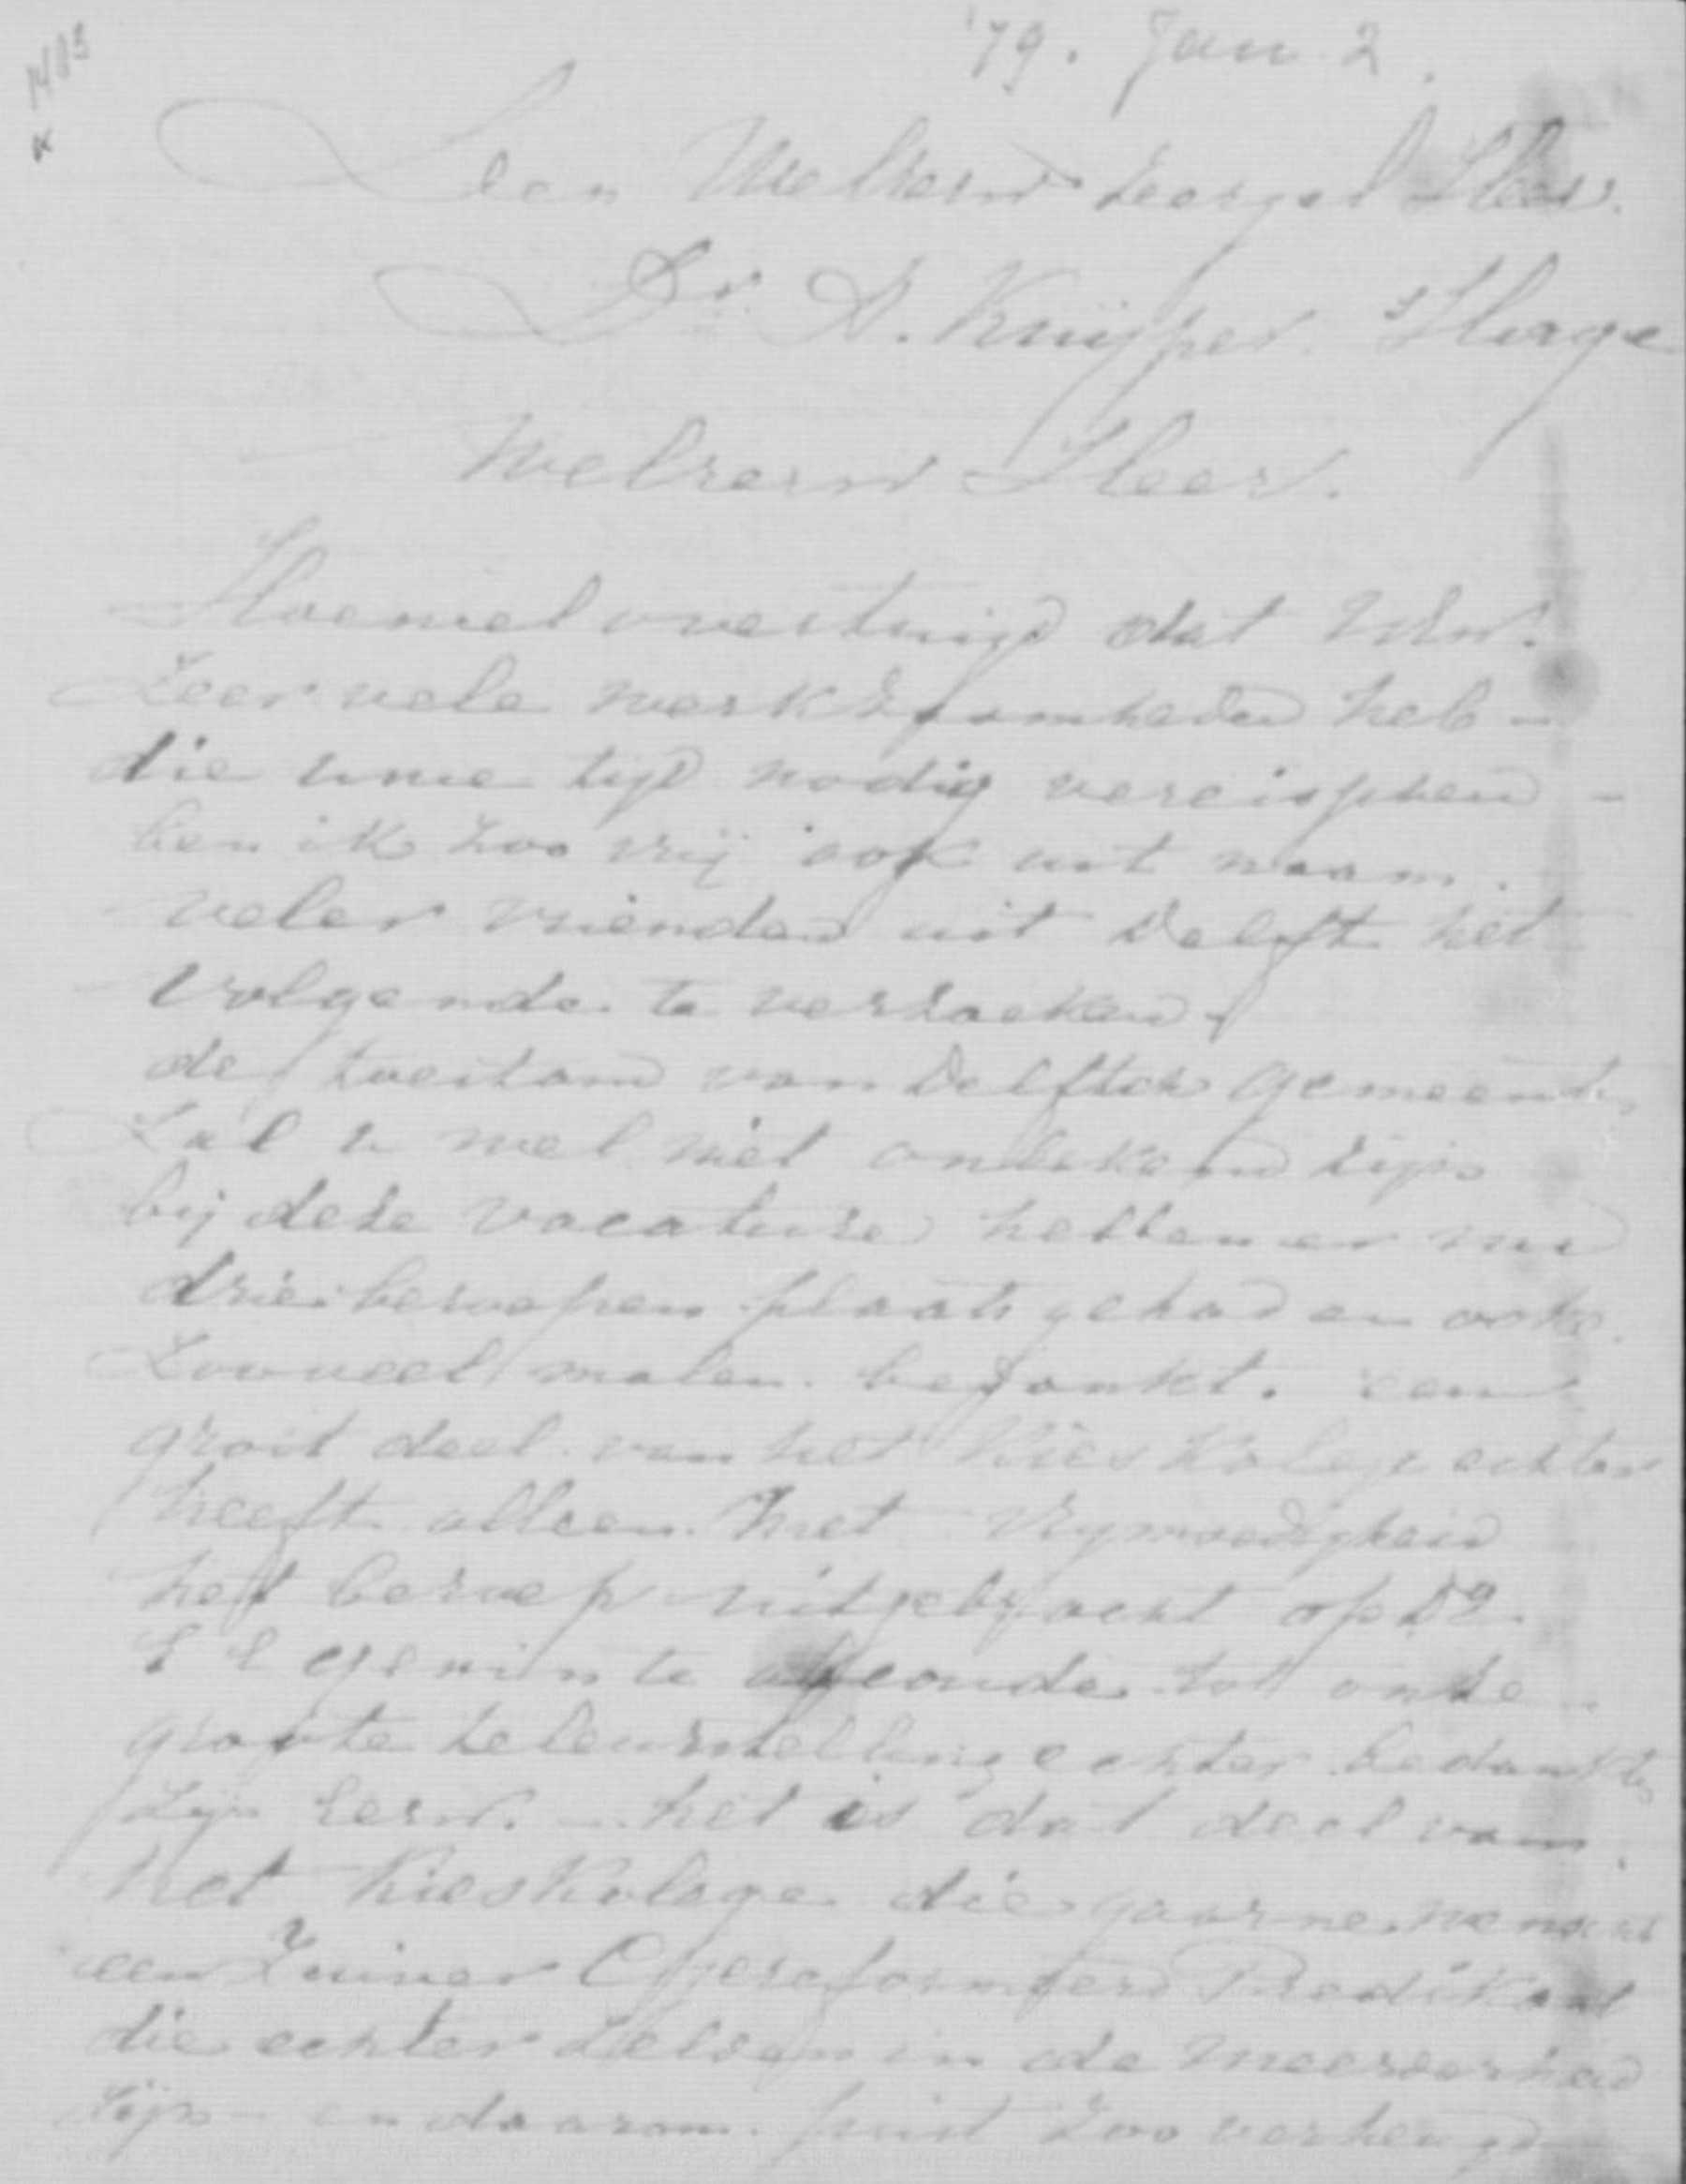 '79. Jan 2.
K 1403
Den Weleerw. Zeergel Heer.
Dr. A. Kuijper. 'sHage
Weleerw Heer.
Hoewel overtuigd dat UEw.
Zeer vele werkzaamheden heb -
die uwe tijd nodig vereisschen -
ben ik zoo vrij ook uit naam.
veler vrienden uit Delft het
volgende te verzoeken.
de toestand van Delftsch gemeente
Zal u wel niet onbekend zijn
bij deze vacature hebben er nu
drie beroepen plaats gehad en ook
Zooveel malen bedankt. een
groot deel van het Kies Kolege echter
heeft alleen met Vrijmoedigheid
het beroep uitgebracht op Ds.
E E Gewin te tot onze
groote teleurstelling echter bedankte
Zijn Eerw. - het is dat deel van
het Kieskolege die gaarne
een Zuiver Gereformeerd Predikant
die echter Zelden in de meerderheid
Zijn - en daarom juist zoo verheugd